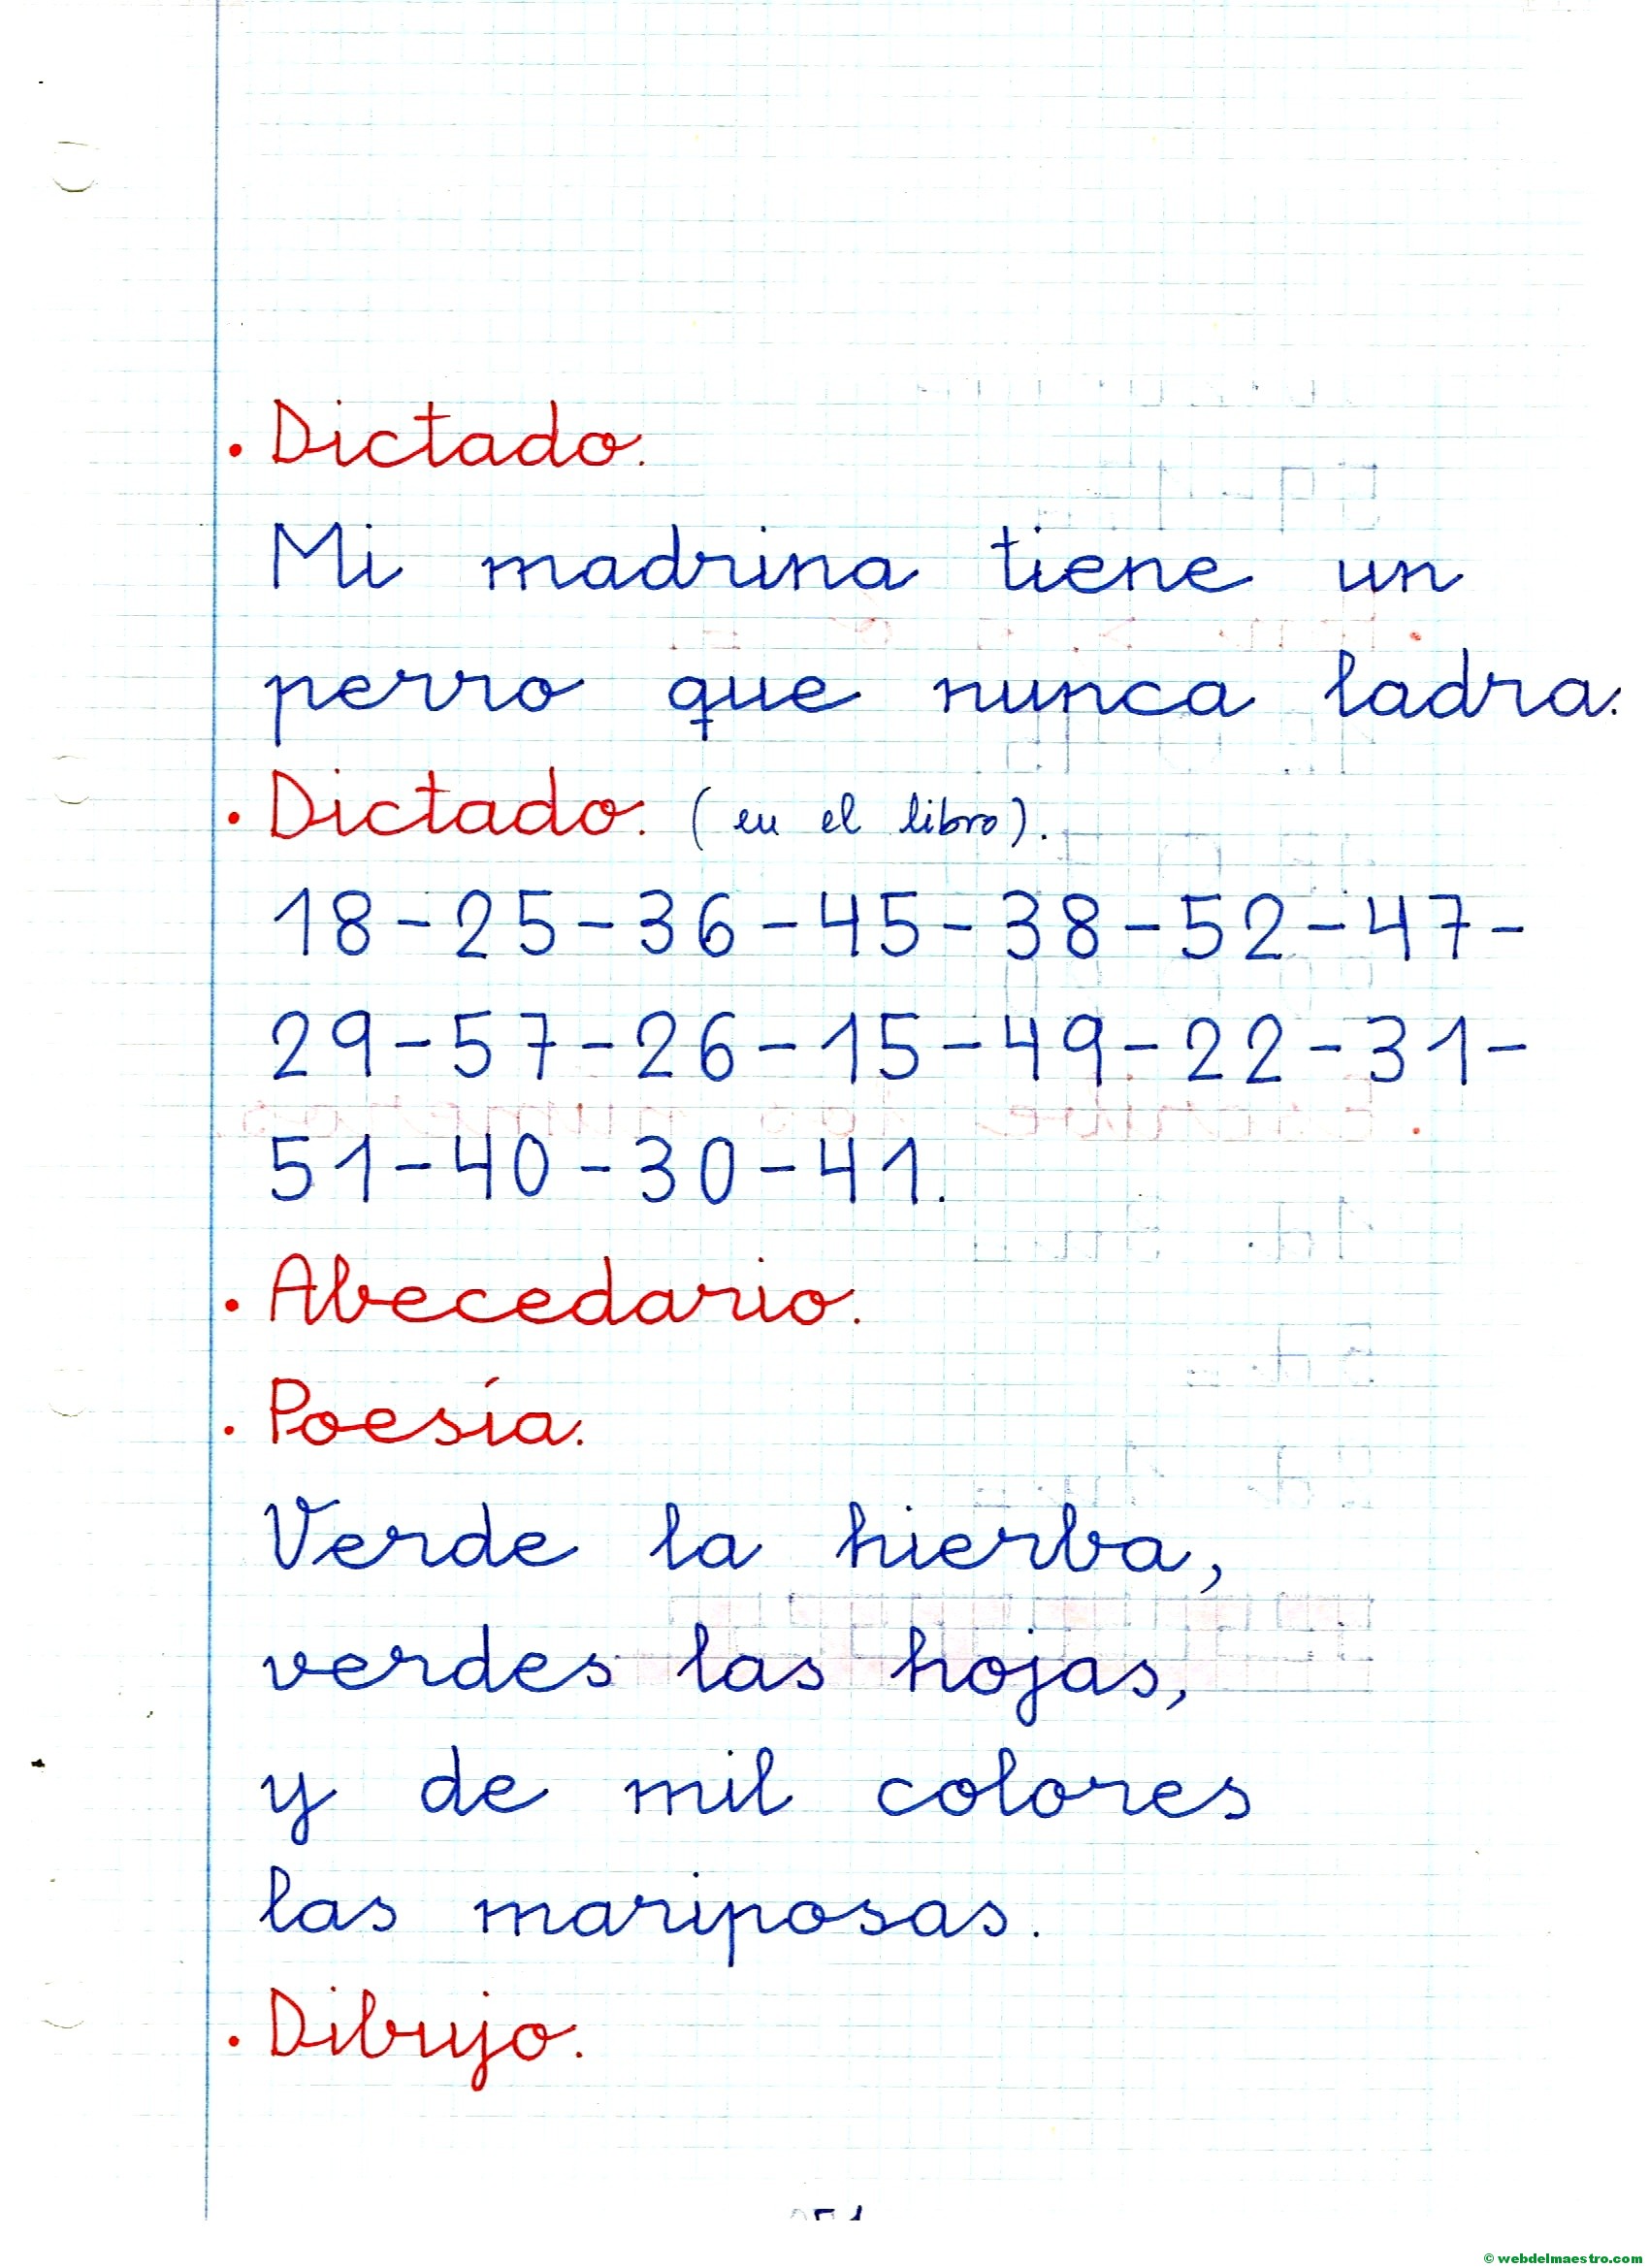 · Dictado.
Mi madrina tiene un
perro que nunca ladra.
· Dictado. (en el libro).
18-25-36-45-38-52-47-
29-57-26-15-49-22-31-
51-40-30-41.
· Abecedario.
· Poesía.
Verde la hierba,
verdes las hojas,
y de mil colores
las mariposas.
· Dibujo.
© webdelmaestro.com